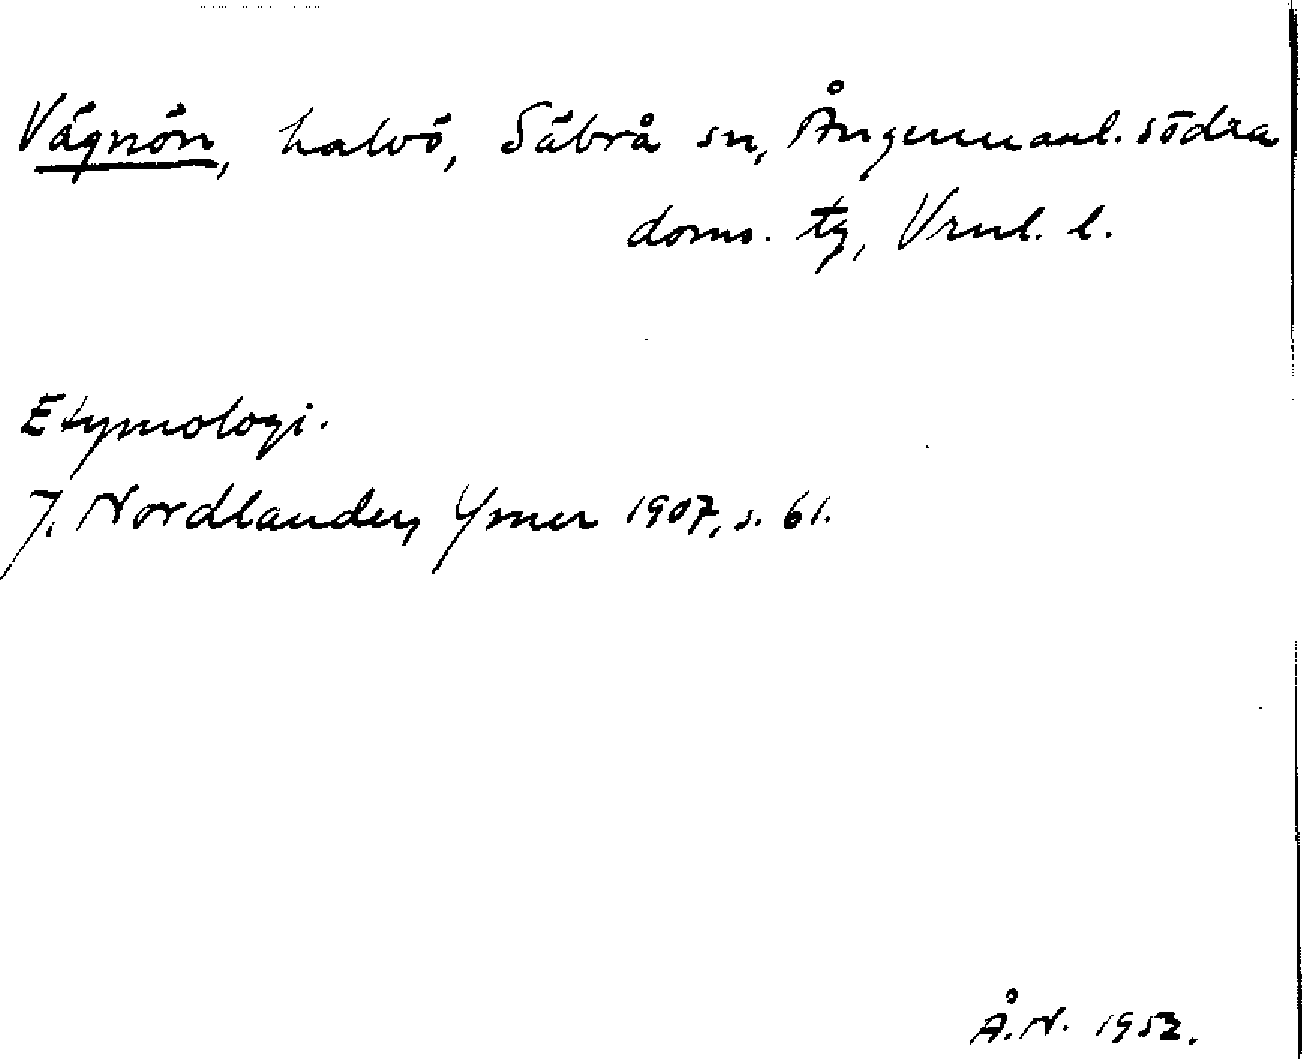 Vägnön, halvö, Säbrå sn, Ångermanl. södra
doms. tg, Vrnl. l.
Etymologi.
J. Nordlander, Ymer 1907, s. 61.
Å.N. 1952.